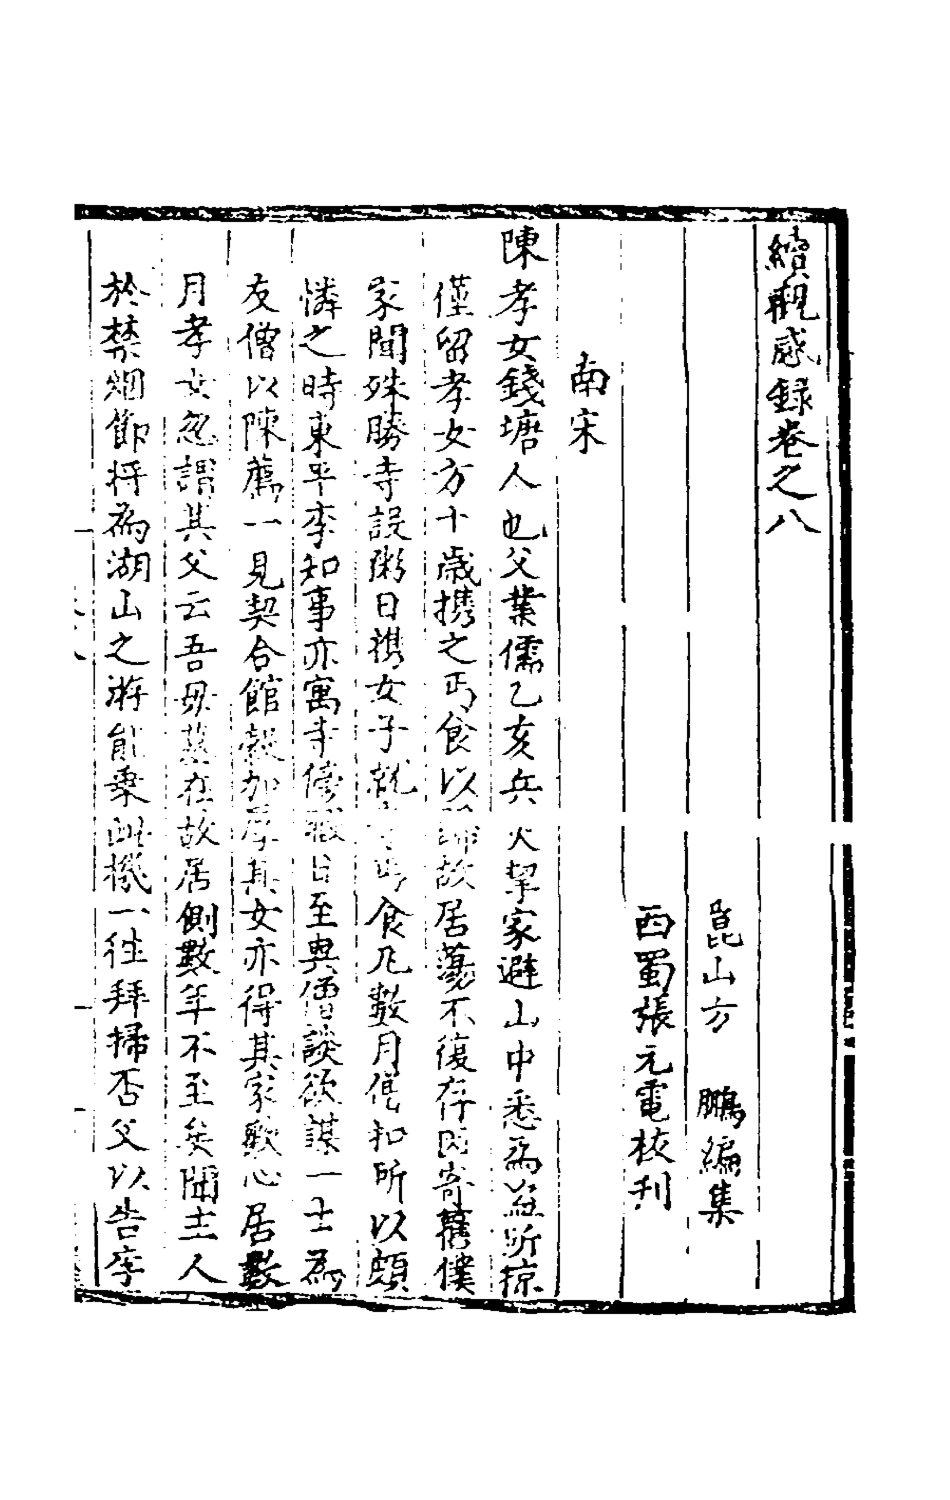 續觀感録卷之八
崑山方　鵬編集
西蜀張元電校刊
南宋
陳孝女錢塘人也父業儒乙亥兵火挈家避山中悉為盜所掠
僅留孝女方十歲携之丐食以歸故居蕩不復存因寄舊僕
家聞殊勝寺設粥日携女子就寺丐食凡數月僧扣所以頗
憐之時東平李知事亦寓寺傍職日至與僧談欲謀一士為
友僧以陳薦一見契合館穀加厚其女亦得其家歡心居數
月孝女忽謂其父云吾母墓在故居側數年不至矣聞主人
於禁烟節将為湖山之游能乗此機一往拜掃否父以告李